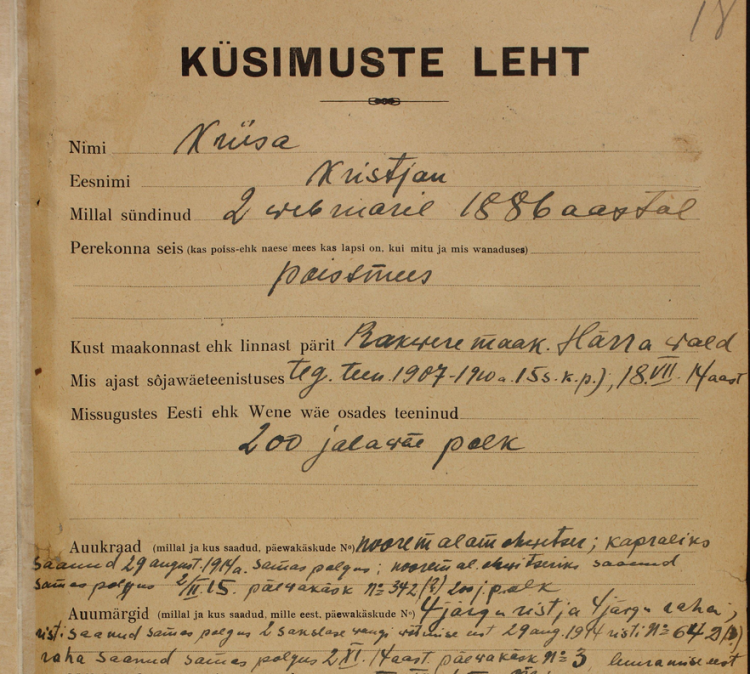 18
KÜSIMUSTE LEHT
Nimi Kriisa
Eesnimi Kristjan
Millal sündinud 2 webruaril 1886 aastal
Perekonna seis (kas poiss-ehk naese mees kas lapsi on, kui mitu ja mis wanaduses)
poissmees
Kust maakonnast ehk linnast pärit Rakwere maak. Härra wald
Mis ajast sõjawäeteenistuses teg. teen. 1907-1910 a. 15 s. k. p.), 18. VII. 14 aast
Missugustes Eesti ehk Wene wäe osades teeninud
200 jalawäe polk
Auukraad (millal ja kus saadud, päewakäskude №) noorem alamohwitser; kapraliks
saanud 29 august. 1914 a. samas polgus; noorem al. ohwitseriks saanud
samas polgus 2/II. 15. päewakäsk № 342 (?) 200 j. polk
Auumärgid (millal ja kus saadud, mille eest, päewakäskude №) 4 järgu rist ja 4 järgu raha;
risti saanud samas polgus 2 sakslase wangi wõtmise eest 29 aug. 1914 risti №
raha saanud samas polgus 2 XI. 14 aast. päewakäsk № 3, luuramise eest